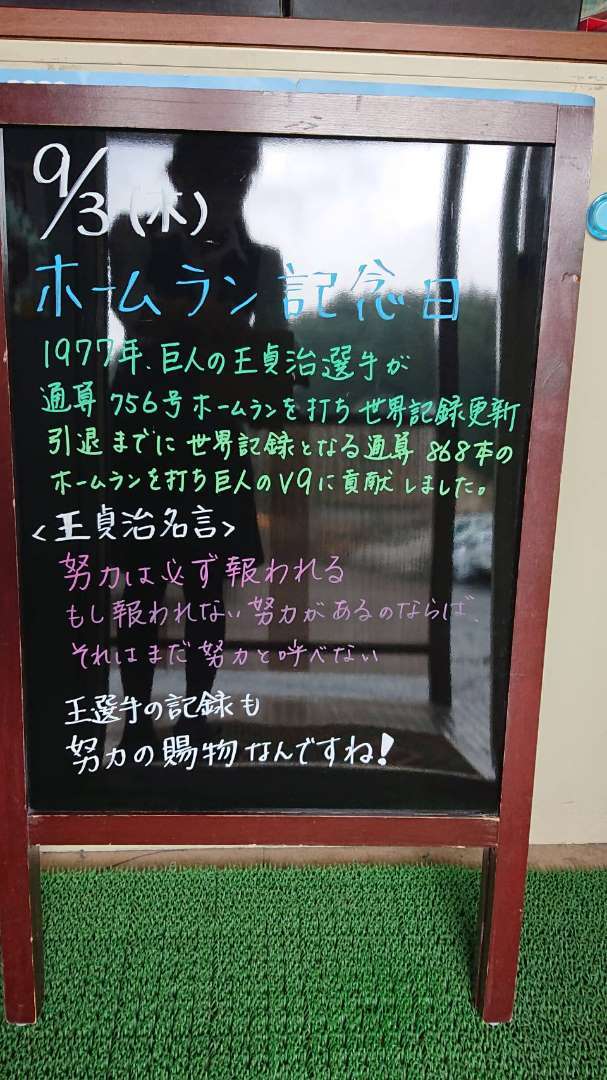 9/3(木)
ホームラン記念日
1977年、巨人の王貞治選手が
通算756号ホームランを打ち世界記録更新
引退までに世界記録となる通算868本の
ホームランを打ち巨人のV9に貢献しました。
<王貞治名言>
努力は必ず報われる
もし報われない努力があるのならば、
それはまだ努力と呼べない
王選手の記録も
努力の賜物なんですね!